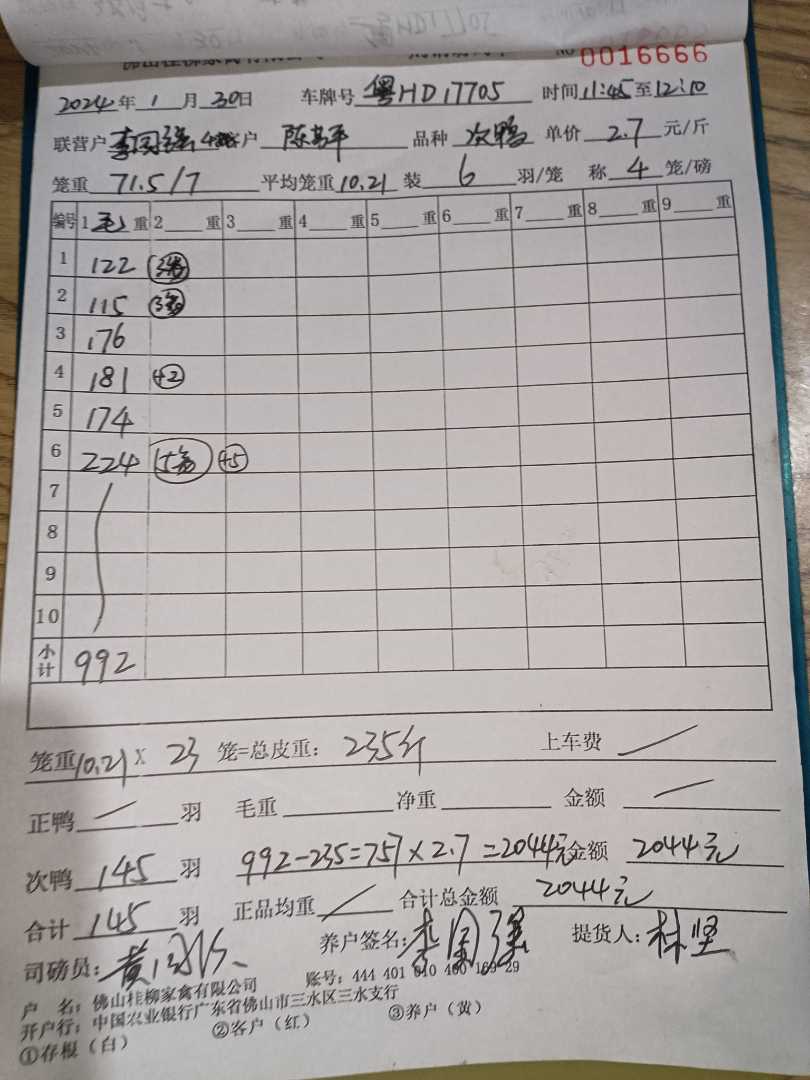 NO 0016666
2024年 1 月 30日 车牌号 粤HD17705 时间 11:45至12:10
联营户 李国强 客户 陈昌平 品种 次鸭 单价 2.7 元/斤
笼重 71.5/7 平均笼重 10.21 装 6 羽/笼 称 4 笼/磅
编号 1 毛 重 2 重 3 重 4 重 5 重 6 重 7 重 8 重 9 重
1 122
2 115
3 176
4 181 +2
5 174
6 224 +5
7
8
9
10
小计 992
笼重10.21 X 23 笼=总皮重: 235斤 上车费
正鸭 羽 毛重 净重 金额
次鸭 145 羽 992-235=757×2.7=2044元 金额 2044元
合计 145 羽 正品均重 合计总金额 2044元
司磅员: 养户签名: 李国强 提货人: 林坚
户 名: 佛山桂柳家禽有限公司 账号: 444 401 010 400 169 29
开户行: 中国农业银行广东省佛山市三水区三水支行
①存根（白） ②客户（红） ③养户（黄）